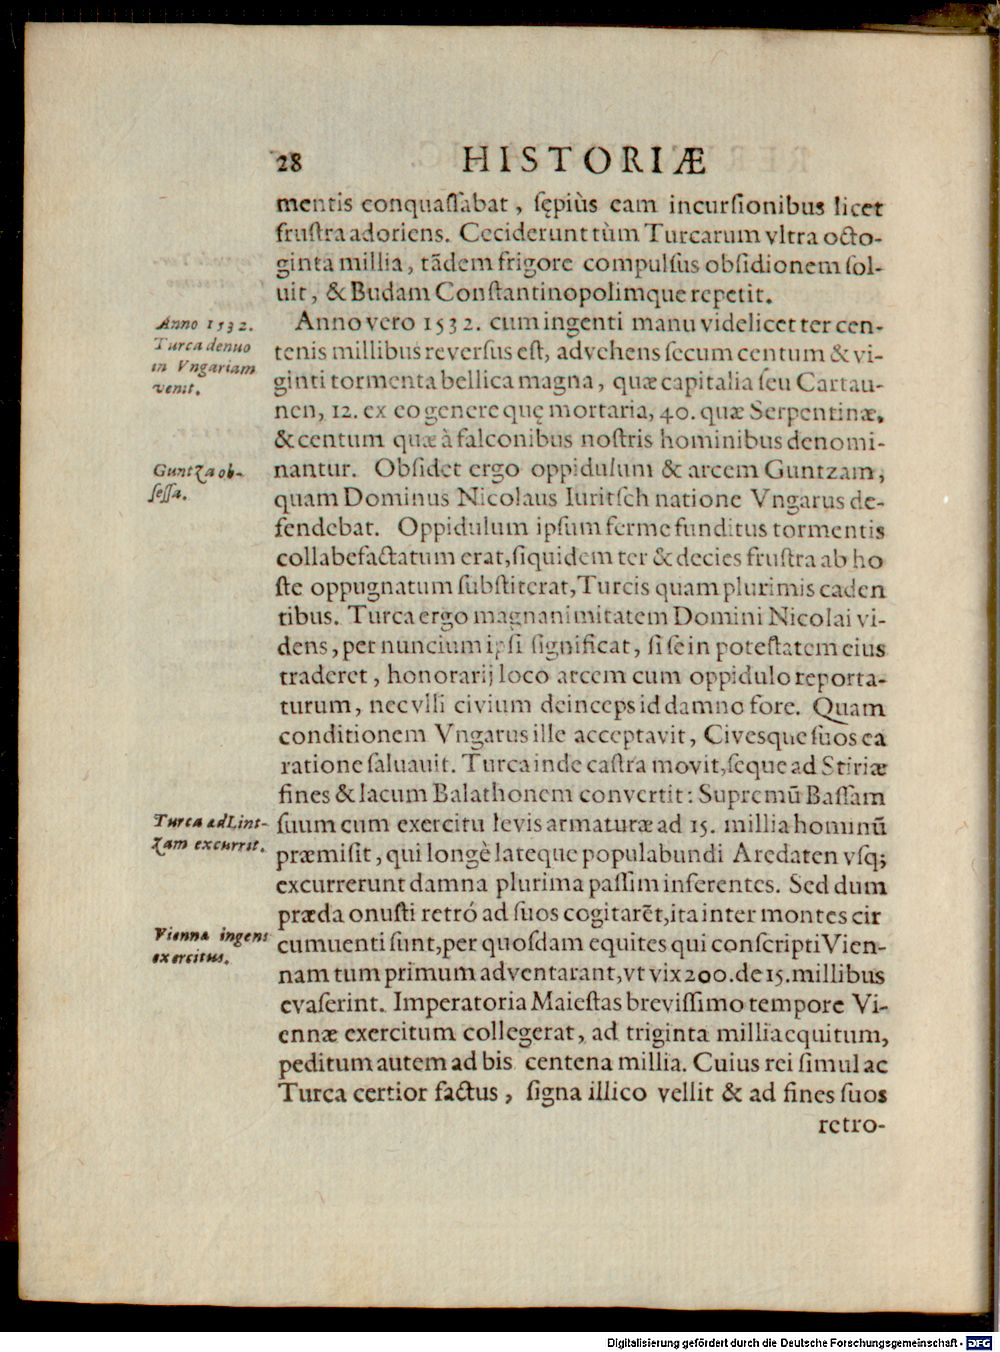 28 HISTORIÆ
mentis conquaſſabat, ſępiùs eam incurſionibus licet
fruſtra adoriens. Ceciderunt tùm Turcarum vltra octo-
ginta millia, tādem frigore compulſus obſidionem ſol-
uit, & Budam Conſtantinopolimque repetit.
Anno 1532.
Turca denuo
in Vngariam
venit.
Anno vero 1532. cum ingenti manu videlicet ter cen-
tenis millibus reverſus eſt, advehens ſecum centum & vi-
ginti tormenta bellica magna, quæ capitalia ſeu Cartau-
nen, 12. ex eo genere quę mortaria, 40. quæ Serpentinæ,
& centum quæ à falconibus noſtris hominibus denomi-
Guntza ob-
ſeſſa.
nantur. Obſidet ergo oppidulum & arcem Guntzam,
quam Dominus Nicolaus Iuritſch natione Vngarus de-
fendebat. Oppidulum ipſum ferme funditus tormentis
collabefactatum erat, ſiquidem ter & decies fruſtra ab ho
ſte oppugnatum ſubſtiterat, Turcis quam plurimis caden
tibus. Turca ergo magnanimitatem Domini Nicolai vi-
dens, per nuncium ipſi ſignificat, ſi ſe in poteſtatem eius
traderet, honorarij loco arcem cum oppidulo reporta-
turum, nec vlli civium deinceps id damno fore. Quam
conditionem Vngarus ille acceptavit, Civesque ſuos ea
ratione ſaluauit. Turca inde caſtra movit, ſeque ad Stiriæ
fines & lacum Balathonem convertit: Supremū Baſſam
Turca ad Lint-
zam excurrit.
ſuum cum exercitu levis armaturæ ad 15. millia hominū
præmiſit, qui longè lateque populabundi Aredaten vſq;
excurrerunt damna plurima paſſim inferentes. Sed dum
præda onuſti retró ad ſuos cogitarēt, ita inter montes cir
Vienna ingens
exercitus.
cumuenti ſunt, per quoſdam equites qui conſcripti Vien-
nam tum primum adventarant, vt vix 200. de 15. millibus
evaſerint. Imperatoria Maieſtas breviſſimo tempore Vi-
ennæ exercitum collegerat, ad triginta millia equitum,
peditum autem ad bis centena millia. Cuius rei ſimul ac
Turca certior factus, ſigna illico vellit & ad fines ſuos
retro-
Digitalisierung gefördert durch die Deutsche Forschungsgemeinschaft - DFG